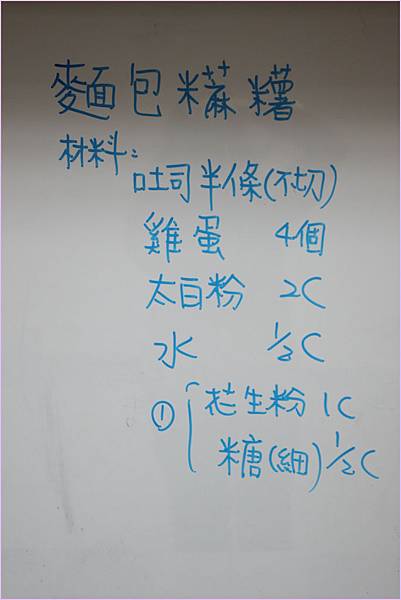 麵包糩糬
材料:
吐司半條(不切)
雞蛋 4個
太白粉 2C
水 1/2C
① 花生粉 1C
糖(細) 1/2C